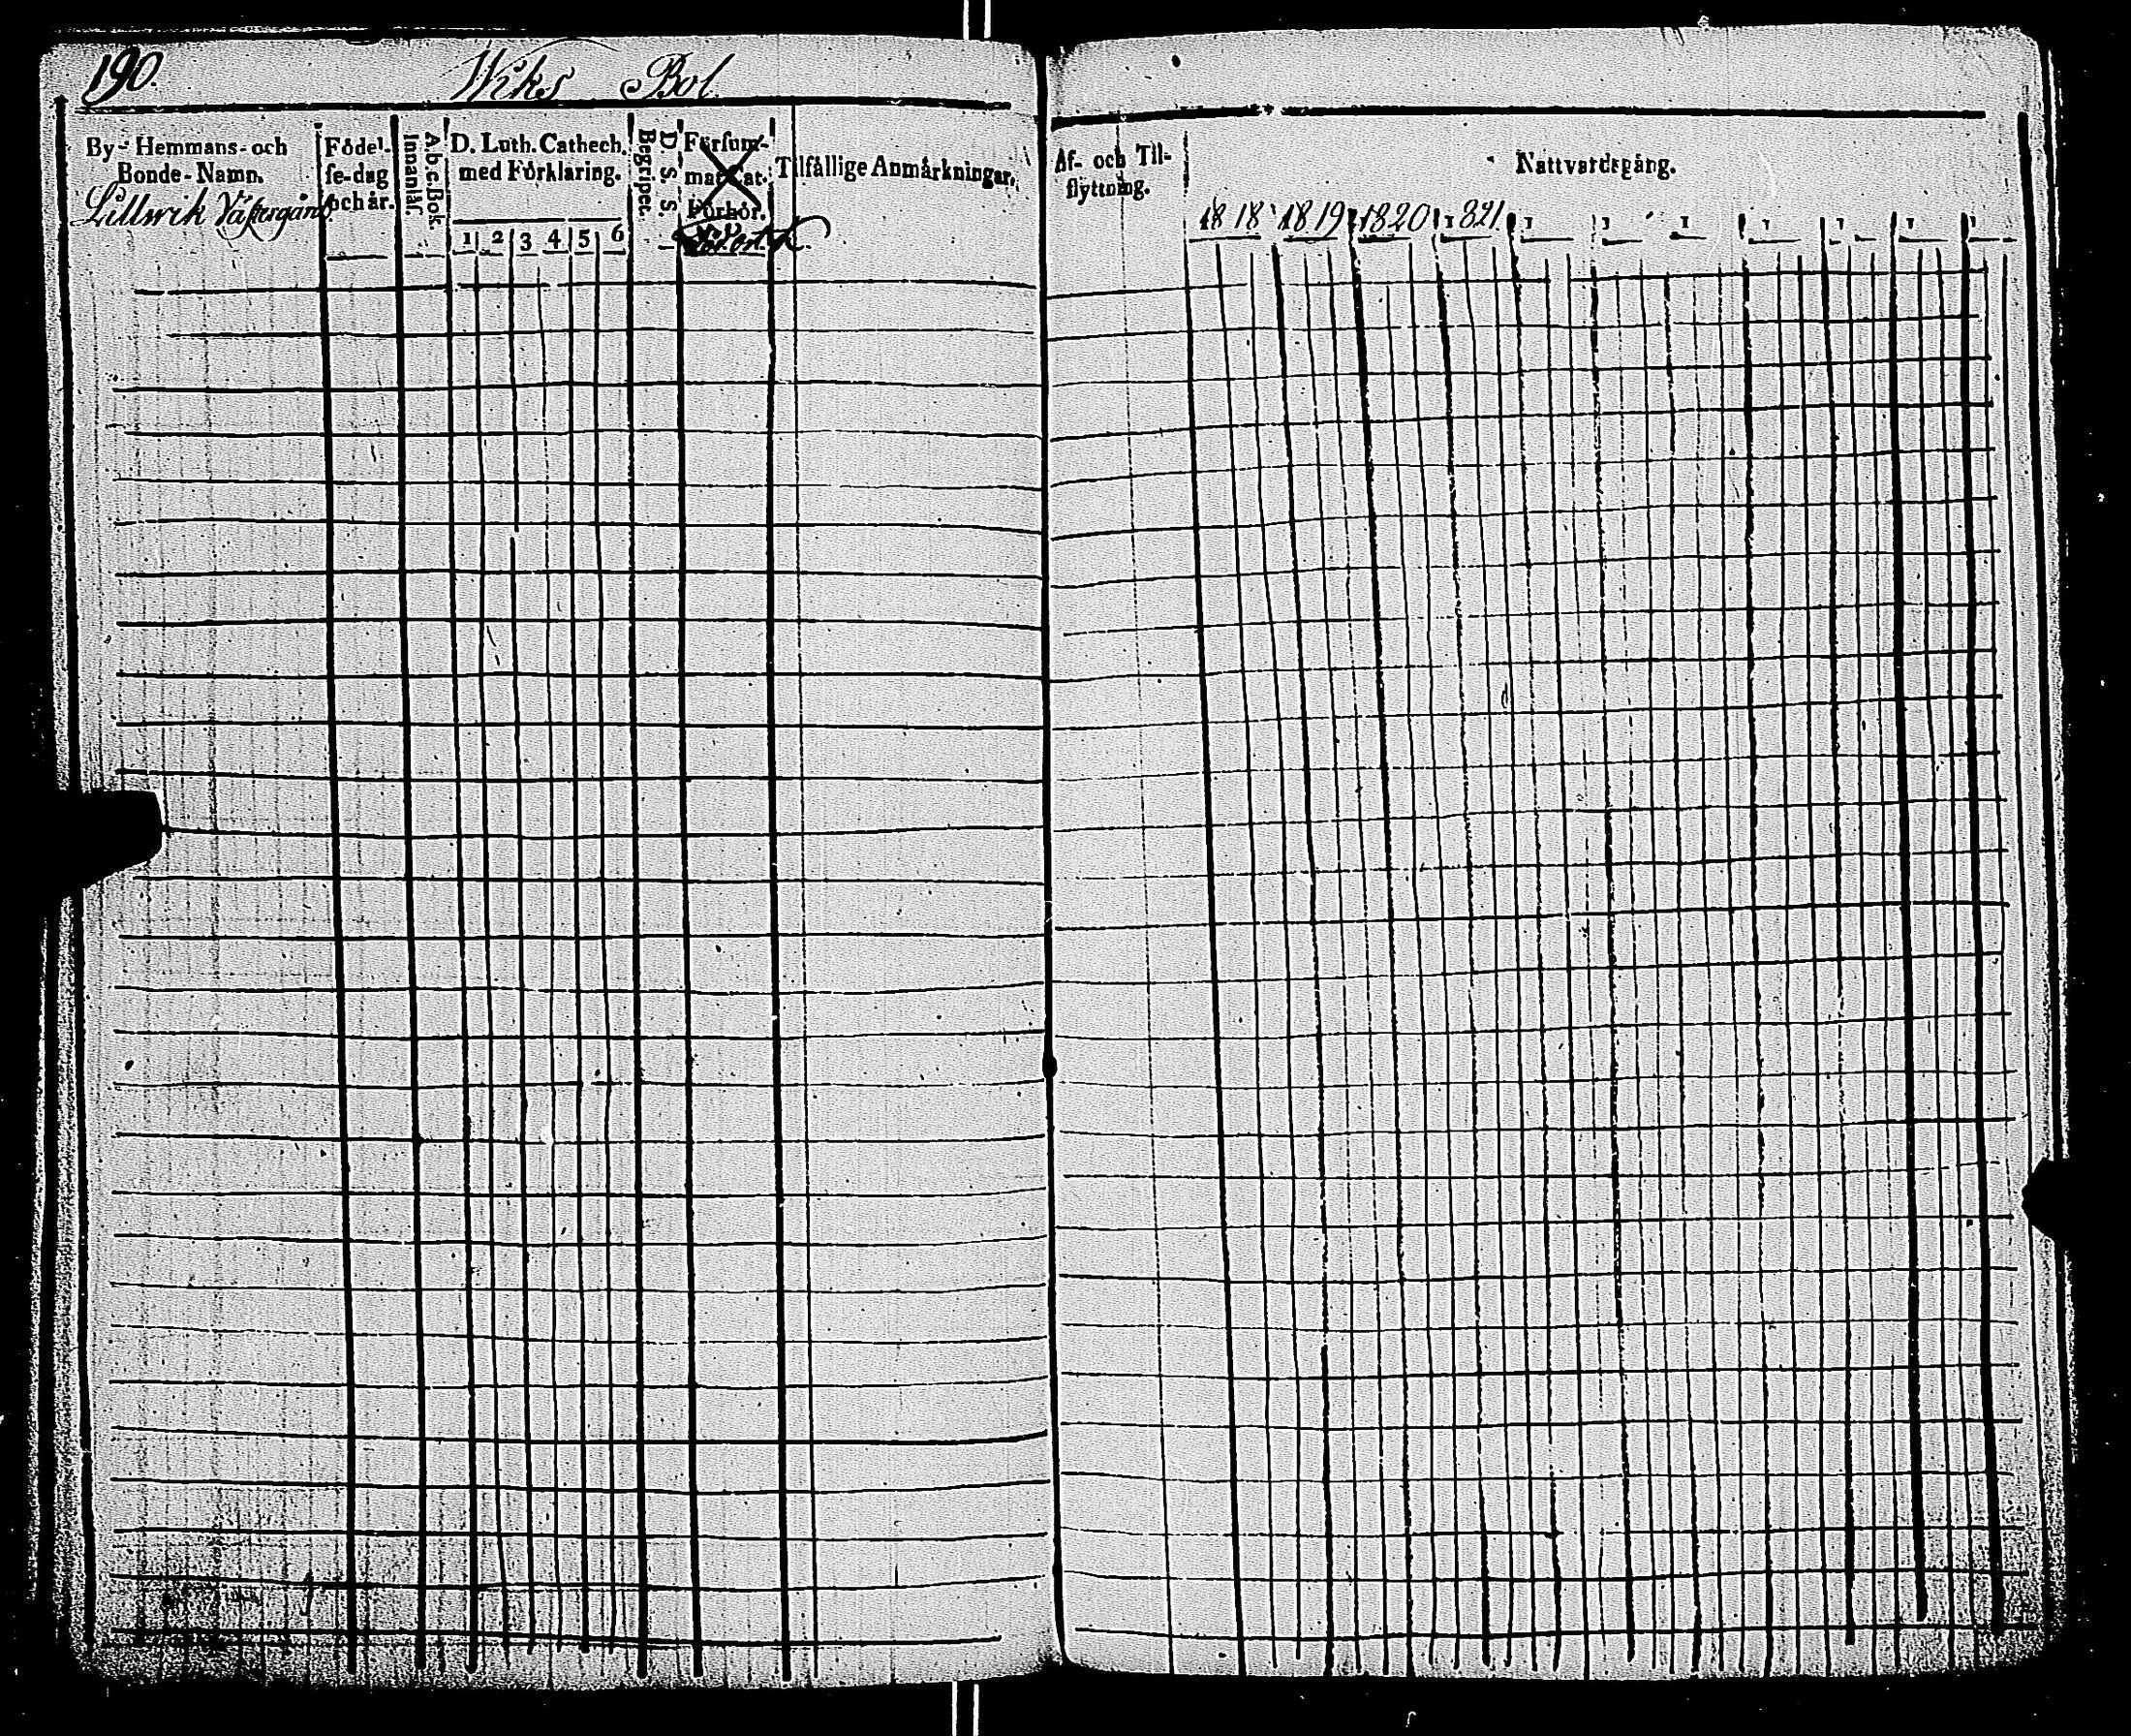 190.
Wiks Bol.
By- Hemmans- och
Bonde-Namn.
Lillwik Västergård.
Födel-
se-dag
och år.
A b c Bok.
Innanläs.
D. Luth. Cathech.
med Förklaring.
1 2 3 4 5 6
D. S. S.
Begripet.
Försum-
mat Cat.
Förhör.
Tilfällige Anmärkningar.
Af- och Til-
flyttning.
Nattvardsgång.
1818 1819 1820 1821 1 1 1 1 1 1 1